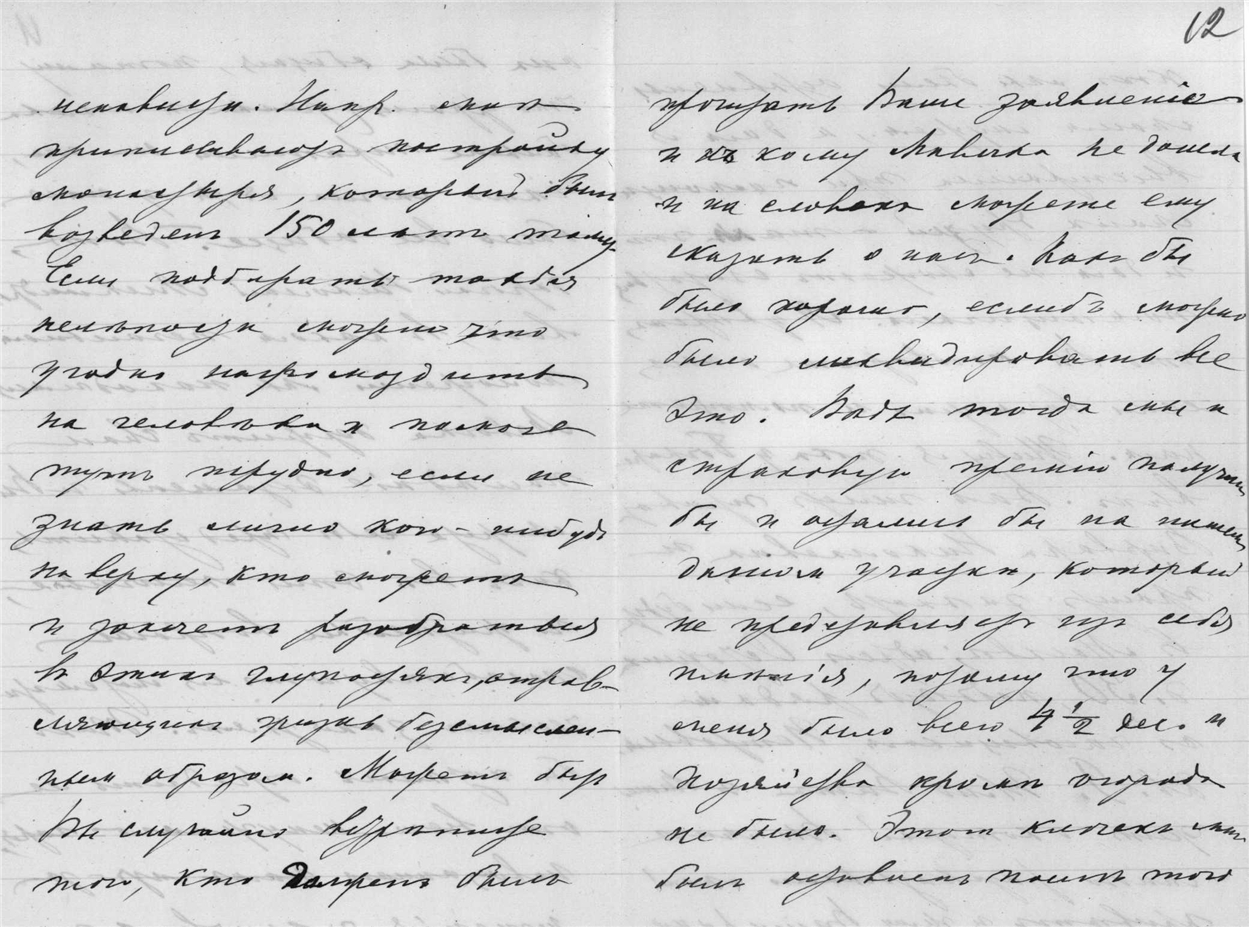 12
ненависти. Напр. мнѣ
приписываютъ постройку
монастыря, который былъ
возведенъ 150 лѣтъ тому.
Если подбирать такiя
нелѣпости можно что
угодно нагромоздить
на человѣка и помочь
тутъ трудно, если не
знать лично кого-нибудь
на верху, кто можетъ
и захочетъ разобраться
въ этихъ глупостяхъ, отрав-
ляющихъ жизнь безсмыслен-
нымъ образомъ. Можетъ быть
Вы случайно встрѣтите
того, кто долженъ былъ
прочитать Ваше заявленiе
и къ кому не дошла
и на словахъ можете ему
сказать о насъ. Какъ бы
было хорошо, еслибъ можно
было ликвидировать все
это. Вѣдь тогда мы и
страховую премiю получили
бы и остались бы на нашемъ
дачномъ участкѣ, который
не представляетъ изъ себя
имѣнiя, потому что у
меня было всего 4 1/2 дес. и
хозяйства кромѣ огорода
не было. Этотъ клочекъ мнѣ
былъ оставленъ послѣ того